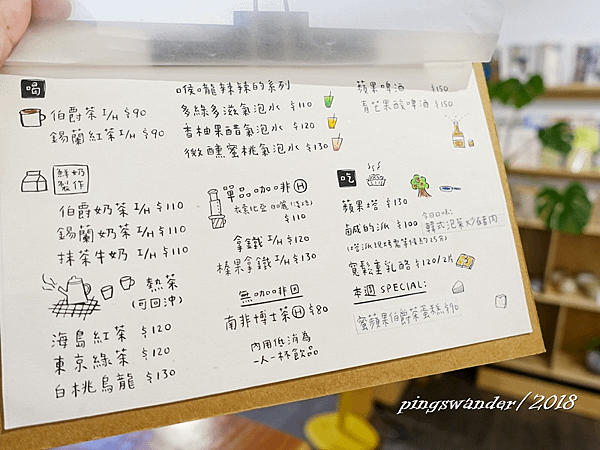 喝
伯爵茶 I/H $90
錫蘭紅茶 I/H $90
鮮奶
製作
伯爵奶茶 I/H $110
錫蘭奶茶 I/H $110
抹茶牛奶 I/H $110
熱茶
(可回沖)
海島紅茶 $120
東京綠茶 $120
白桃烏龍 $130
喉嚨辣辣的系列
多綠多滋氣泡水 $110
香柚果醋氣泡水 $130
微醺蜜桃氣泡水 $130
單品咖啡 H
衣索比亞
$110
拿鐵 I/H $120
榛果拿鐵 I/H $130
無咖啡因
南非博士茶 H $80
內用低消為
一人一杯飲品
蘋果啤酒 $150
青芒果酸啤酒 $150
吃
蘋果塔 $130
鹹的派 $100
今日口味:
韓式泡菜炒豬肉
寬鬆重乳酪 $120/2片
本週 SPECIAL:
蜜蘋果伯爵茶蛋糕 $90
pingswander/2018